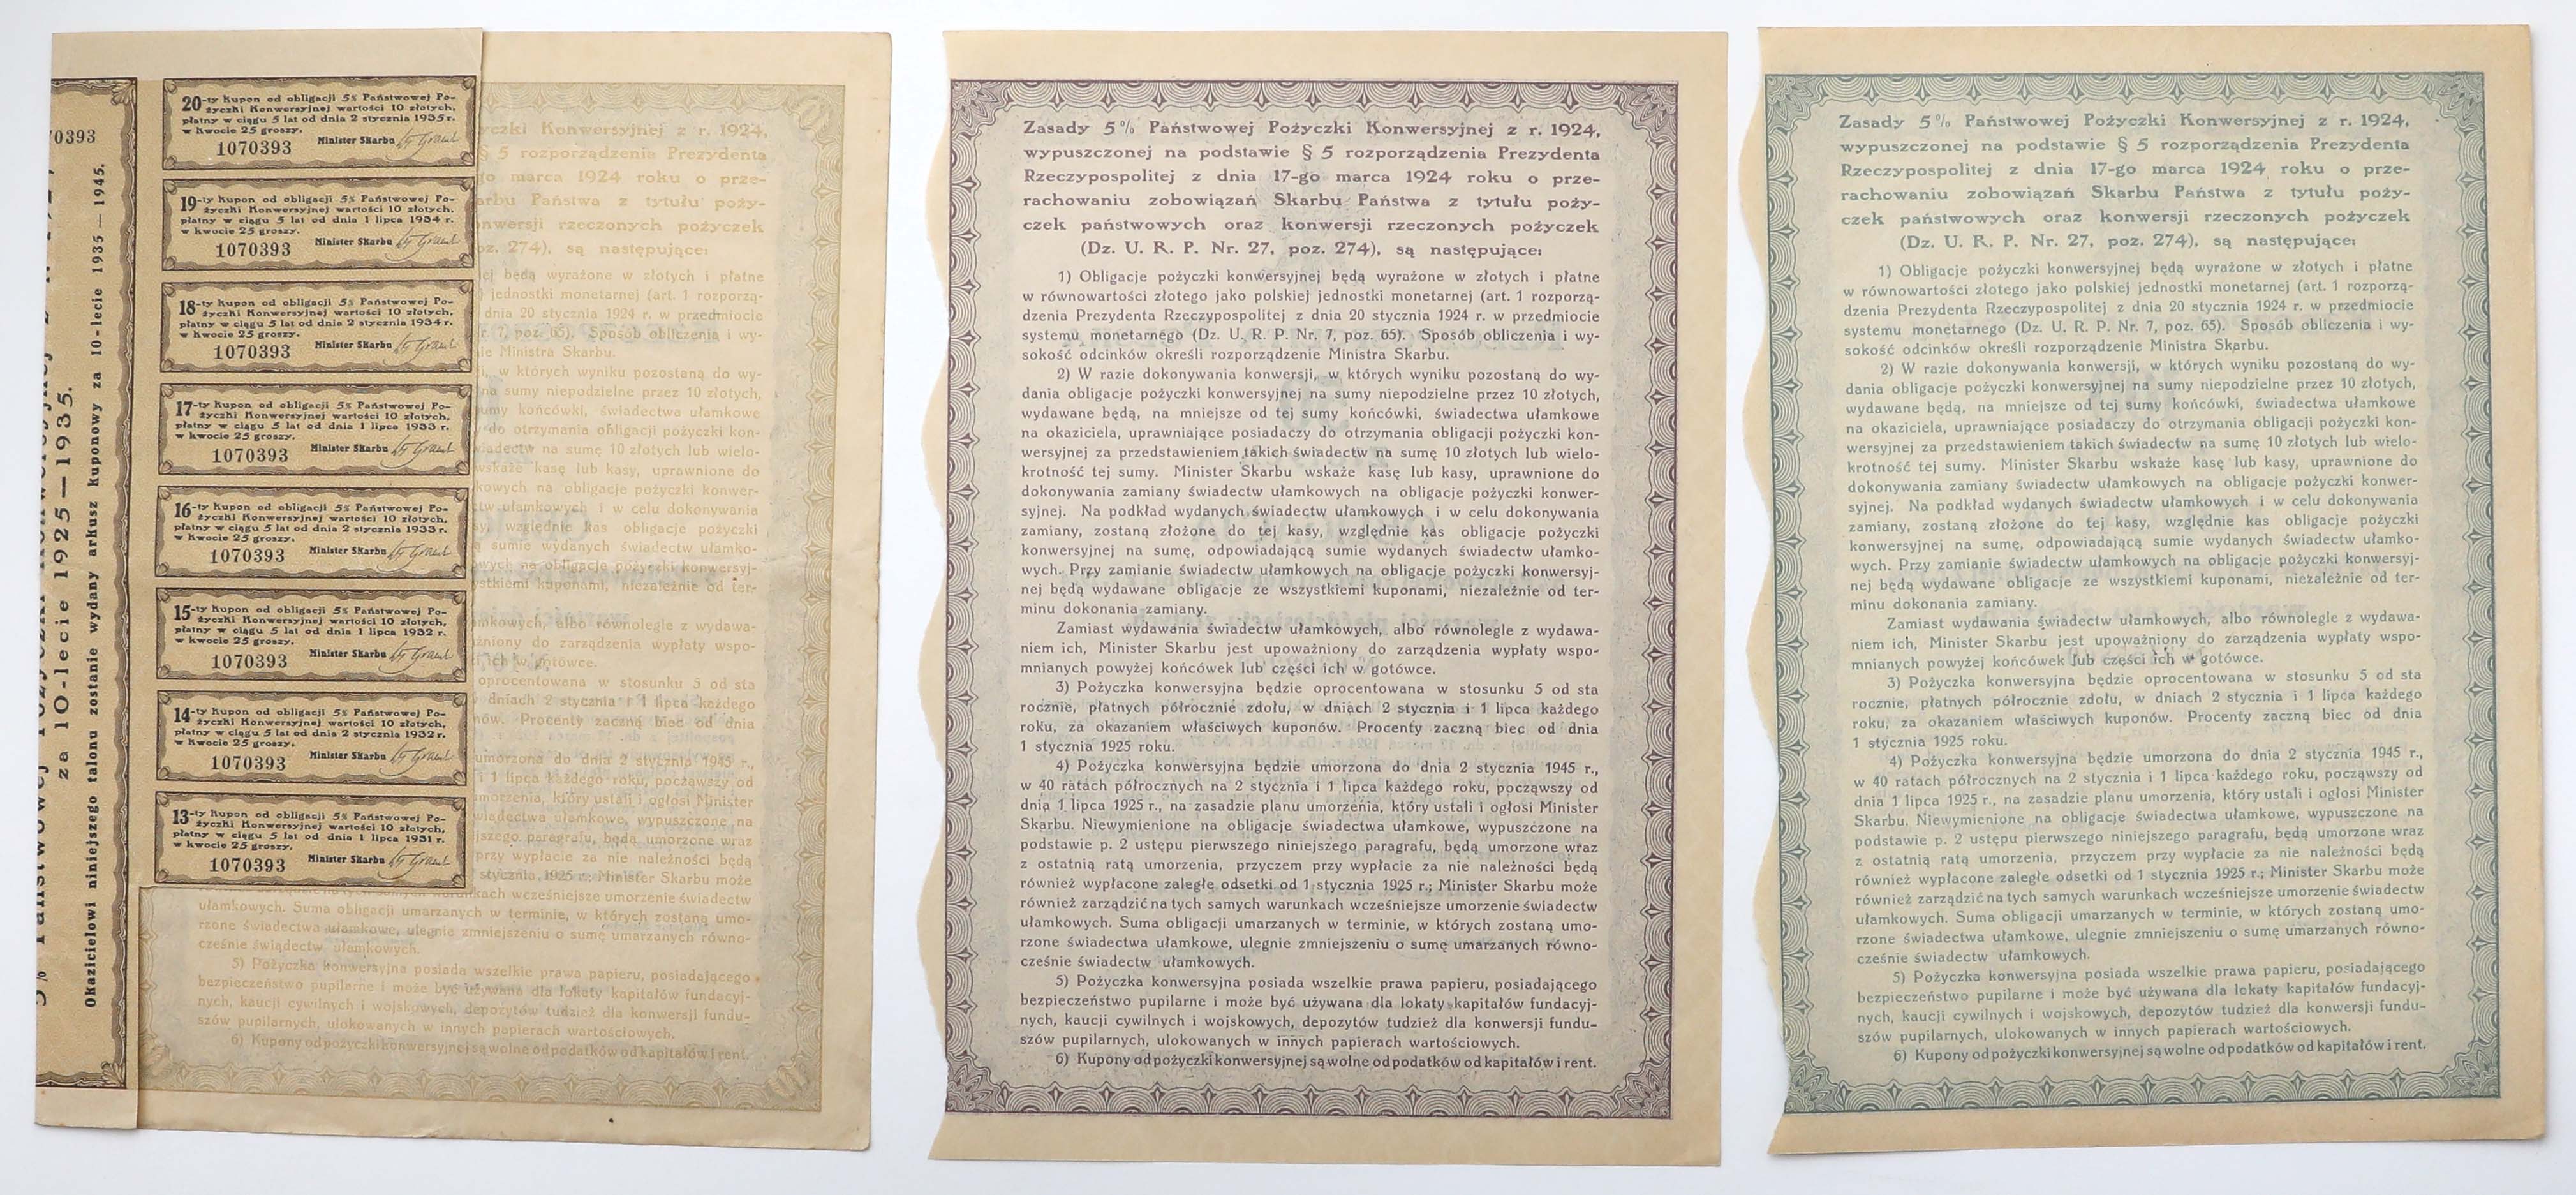 70393
za 10-lecie 1925—1935.
Okazicielowi niniejszego talonu zostanie wydany arkusz kuponowy za 10-lecie 1935—1945.
20-ty kupon od obligacji 5% Państwowej Po-
życzki Konwersyjnej wartości 10 złotych,
płatny w ciągu 5 lat od dnia 2 stycznia 1935 r.
w kwocie 25 groszy.
Minister Skarbu
1070393
19-ty kupon od obligacji 5% Państwowej Po-
życzki Konwersyjnej wartości 10 złotych,
płatny w ciągu 5 lat od dnia 1 lipca 1934 r.
w kwocie 25 groszy.
Minister Skarbu
1070393
18-ty kupon od obligacji 5% Państwowej Po-
życzki Konwersyjnej wartości 10 złotych,
płatny w ciągu 5 lat od dnia 2 stycznia 1934 r.
w kwocie 25 groszy.
Minister Skarbu
1070393
17-ty kupon od obligacji 5% Państwowej Po-
życzki Konwersyjnej wartości 10 złotych,
płatny w ciągu 5 lat od dnia 1 lipca 1933 r.
w kwocie 25 groszy.
Minister Skarbu
1070393
16-ty kupon od obligacji 5% Państwowej Po-
życzki Konwersyjnej wartości 10 złotych,
płatny w ciągu 5 lat od dnia 2 stycznia 1933 r.
w kwocie 25 groszy.
Minister Skarbu
1070393
15-ty kupon od obligacji 5% Państwowej Po-
życzki Konwersyjnej wartości 10 złotych,
płatny w ciągu 5 lat od dnia 1 lipca 1932 r.
w kwocie 25 groszy.
Minister Skarbu
1070393
14-ty kupon od obligacji 5% Państwowej Po-
życzki Konwersyjnej wartości 10 złotych,
płatny w ciągu 5 lat od dnia 2 stycznia 1932 r.
w kwocie 25 groszy.
Minister Skarbu
1070393
13-ty kupon od obligacji 5% Państwowej Po-
życzki Konwersyjnej wartości 10 złotych,
płatny w ciągu 5 lat od dnia 1 lipca 1931 r.
w kwocie 25 groszy.
Minister Skarbu
1070393
yczki Konwersyjnej z r. 1924,
§ 5 rozporządzenia Prezydenta
go marca 1924 roku o prze-
arbu Państwa z tytułu poży-
nwersji rzeczonych pożyczek
oz. 274), są następujące:
ej będą wyrażone w złotych i płatne
jednostki monetarnej (art. 1 rozporzą-
dnia 20 stycznia 1924 r. w przedmiocie
r. 7, poz. 65). Sposób obliczenia i wy-
ie Ministra Skarbu.
i, w których wyniku pozostaną do wy-
na sumy niepodzielne przez 10 złotych,
umy końcówki, świadectwa ułamkowe
do otrzymania obligacji pożyczki kon-
wiadectw na sumę 10 złotych lub wielo-
wskaże kasę lub kasy, uprawnione do
kowych na obligacje pożyczki konwer-
ctw ułamkowych i w celu dokonywania
sy, względnie kas obligacje pożyczki
ą sumie wydanych świadectw ułamko-
wych na obligacje pożyczki konwersyj-
ystkiemi kuponami, niezależnie od ter-
mkowych, albo równolegle z wydawa-
żniony do zarządzenia wypłaty wspo-
i ich w gotówce.
oprocentowana w stosunku 5 od sta
dniach 2 stycznia i 1 lipca każdego
nów. Procenty zaczną biec od dnia
umorzona do dnia 2 stycznia 1945 r.,
i 1 lipca każdego roku, począwszy od
morzenia, który ustali i ogłosi Minister
wiadectwa ułamkowe, wypuszczone na
jszego paragrafu, będą umorzone wraz
przy wypłacie za nie należności będą
stycznia 1925 r.; Minister Skarbu może
kach wcześniejsze umorzenie świadectw
ułamkowych. Suma obligacji umarzanych w terminie, w których zostaną umo-
rzone świadectwa ułamkowe, ulegnie zmniejszeniu o sumę umarzanych równo-
cześnie świadectw ułamkowych.
5) Pożyczka konwersyjna posiada wszelkie prawa papieru, posiadającego
bezpieczeństwo pupilarne i może być używana dla lokaty kapitałów fundacyj-
nych, kaucji cywilnych i wojskowych, depozytów tudzież dla konwersji fundu-
szów pupilarnych, ulokowanych w innych papierach wartościowych.
6) Kupony od pożyczki konwersyjnej są wolne od podatków od kapitałów i rent.
Zasady 5% Państwowej Pożyczki Konwersyjnej z r. 1924,
wypuszczonej na podstawie § 5 rozporządzenia Prezydenta
Rzeczypospolitej z dnia 17-go marca 1924 roku o prze-
rachowaniu zobowiązań Skarbu Państwa z tytułu poży-
czek państwowych oraz konwersji rzeczonych pożyczek
(Dz. U. R. P. Nr. 27, poz. 274), są następujące:
1) Obligacje pożyczki konwersyjnej będą wyrażone w złotych i płatne
w równowartości złotego jako polskiej jednostki monetarnej (art. 1 rozporzą-
dzenia Prezydenta Rzeczypospolitej z dnia 20 stycznia 1924 r. w przedmiocie
systemu monetarnego (Dz. U. R. P. Nr. 7, poz. 65). Sposób obliczenia i wy-
sokość odcinków określi rozporządzenie Ministra Skarbu.
2) W razie dokonywania konwersji, w których wyniku pozostaną do wy-
dania obligacje pożyczki konwersyjnej na sumy niepodzielne przez 10 złotych,
wydawane będą, na mniejsze od tej sumy końcówki, świadectwa ułamkowe
na okaziciela, uprawniające posiadaczy do otrzymania obligacji pożyczki kon-
wersyjnej za przedstawieniem takich świadectw na sumę 10 złotych lub wielo-
krotność tej sumy. Minister Skarbu wskaże kasę lub kasy, uprawnione do
dokonywania zamiany świadectw ułamkowych na obligacje pożyczki konwer-
syjnej. Na podkład wydanych świadectw ułamkowych i w celu dokonywania
zamiany, zostaną złożone do tej kasy, względnie kas obligacje pożyczki
konwersyjnej na sumę, odpowiadającą sumie wydanych świadectw ułamko-
wych. Przy zamianie świadectw ułamkowych na obligacje pożyczki konwersyj-
nej będą wydawane obligacje ze wszystkiemi kuponami, niezależnie od ter-
minu dokonania zamiany.
Zamiast wydawania świadectw ułamkowych, albo równolegle z wydawa-
niem ich, Minister Skarbu jest upoważniony do zarządzenia wypłaty wspo-
mnianych powyżej końcówek lub części ich w gotówce.
3) Pożyczka konwersyjna będzie oprocentowana w stosunku 5 od sta
rocznie, płatnych półrocznie zdołu, w dniach 2 stycznia i 1 lipca każdego
roku, za okazaniem właściwych kuponów. Procenty zaczną biec od dnia
1 stycznia 1925 roku.
4) Pożyczka konwersyjna będzie umorzona do dnia 2 stycznia 1945 r.,
w 40 ratach półrocznych na 2 stycznia i 1 lipca każdego roku, począwszy od
dnia 1 lipca 1925 r., na zasadzie planu umorzenia, który ustali i ogłosi Minister
Skarbu. Niewymienione na obligacje świadectwa ułamkowe, wypuszczone na
podstawie p. 2 ustępu pierwszego niniejszego paragrafu, będą umorzone wraz
z ostatnią ratą umorzenia, przyczem przy wypłacie za nie należności będą
również wypłacone zaległe odsetki od 1 stycznia 1925 r.; Minister Skarbu może
również zarządzić na tych samych warunkach wcześniejsze umorzenie świadectw
ułamkowych. Suma obligacji umarzanych w terminie, w których zostaną umo-
rzone świadectwa ułamkowe, ulegnie zmniejszeniu o sumę umarzanych równo-
cześnie świadectw ułamkowych.
5) Pożyczka konwersyjna posiada wszelkie prawa papieru, posiadającego
bezpieczeństwo pupilarne i może być używana dla lokaty kapitałów fundacyj-
nych, kaucji cywilnych i wojskowych, depozytów tudzież dla konwersji fundu-
szów pupilarnych, ulokowanych w innych papierach wartościowych.
6) Kupony od pożyczki konwersyjnej są wolne od podatków od kapitałów i rent.
Zasady 5% Państwowej Pożyczki Konwersyjnej z r. 1924,
wypuszczonej na podstawie § 5 rozporządzenia Prezydenta
Rzeczypospolitej z dnia 17-go marca 1924 roku o prze-
rachowaniu zobowiązań Skarbu Państwa z tytułu poży-
czek państwowych oraz konwersji rzeczonych pożyczek
(Dz. U. R. P. Nr. 27, poz. 274), są następujące:
1) Obligacje pożyczki konwersyjnej będą wyrażone w złotych i płatne
w równowartości złotego jako polskiej jednostki monetarnej (art. 1 rozporzą-
dzenia Prezydenta Rzeczypospolitej z dnia 20 stycznia 1924 r. w przedmiocie
systemu monetarnego (Dz. U. R. P. Nr. 7, poz. 65). Sposób obliczenia i wy-
sokość odcinków określi rozporządzenie Ministra Skarbu.
2) W razie dokonywania konwersji, w których wyniku pozostaną do wy-
dania obligacje pożyczki konwersyjnej na sumy niepodzielne przez 10 złotych,
wydawane będą, na mniejsze od tej sumy końcówki, świadectwa ułamkowe
na okaziciela, uprawniające posiadaczy do otrzymania obligacji pożyczki kon-
wersyjnej za przedstawieniem takich świadectw na sumę 10 złotych lub wielo-
krotność tej sumy. Minister Skarbu wskaże kasę lub kasy, uprawnione do
dokonywania zamiany świadectw ułamkowych na obligacje pożyczki konwer-
syjnej. Na podkład wydanych świadectw ułamkowych i w celu dokonywania
zamiany, zostaną złożone do tej kasy, względnie kas obligacje pożyczki
konwersyjnej na sumę, odpowiadającą sumie wydanych świadectw ułamko-
wych. Przy zamianie świadectw ułamkowych na obligacje pożyczki konwersyj-
nej będą wydawane obligacje ze wszystkiemi kuponami, niezależnie od ter-
minu dokonania zamiany.
Zamiast wydawania świadectw ułamkowych, albo równolegle z wydawa-
niem ich, Minister Skarbu jest upoważniony do zarządzenia wypłaty wspo-
mnianych powyżej końcówek lub części ich w gotówce.
3) Pożyczka konwersyjna będzie oprocentowana w stosunku 5 od sta
rocznie, płatnych półrocznie zdołu, w dniach 2 stycznia i 1 lipca każdego
roku, za okazaniem właściwych kuponów. Procenty zaczną biec od dnia
1 stycznia 1925 roku.
4) Pożyczka konwersyjna będzie umorzona do dnia 2 stycznia 1945 r.,
w 40 ratach półrocznych na 2 stycznia i 1 lipca każdego roku, począwszy od
dnia 1 lipca 1925 r., na zasadzie planu umorzenia, który ustali i ogłosi Minister
Skarbu. Niewymienione na obligacje świadectwa ułamkowe, wypuszczone na
podstawie p. 2 ustępu pierwszego niniejszego paragrafu, będą umorzone wraz
z ostatnią ratą umorzenia, przyczem przy wypłacie za nie należności będą
również wypłacone zaległe odsetki od 1 stycznia 1925 r.; Minister Skarbu może
również zarządzić na tych samych warunkach wcześniejsze umorzenie świadectw
ułamkowych. Suma obligacji umarzanych w terminie, w których zostaną umo-
rzone świadectwa ułamkowe, ulegnie zmniejszeniu o sumę umarzanych równo-
cześnie świadectw ułamkowych.
5) Pożyczka konwersyjna posiada wszelkie prawa papieru, posiadającego
bezpieczeństwo pupilarne i może być używana dla lokaty kapitałów fundacyj-
nych, kaucji cywilnych i wojskowych, depozytów tudzież dla konwersji fundu-
szów pupilarnych, ulokowanych w innych papierach wartościowych.
6) Kupony od pożyczki konwersyjnej są wolne od podatków od kapitałów i rent.